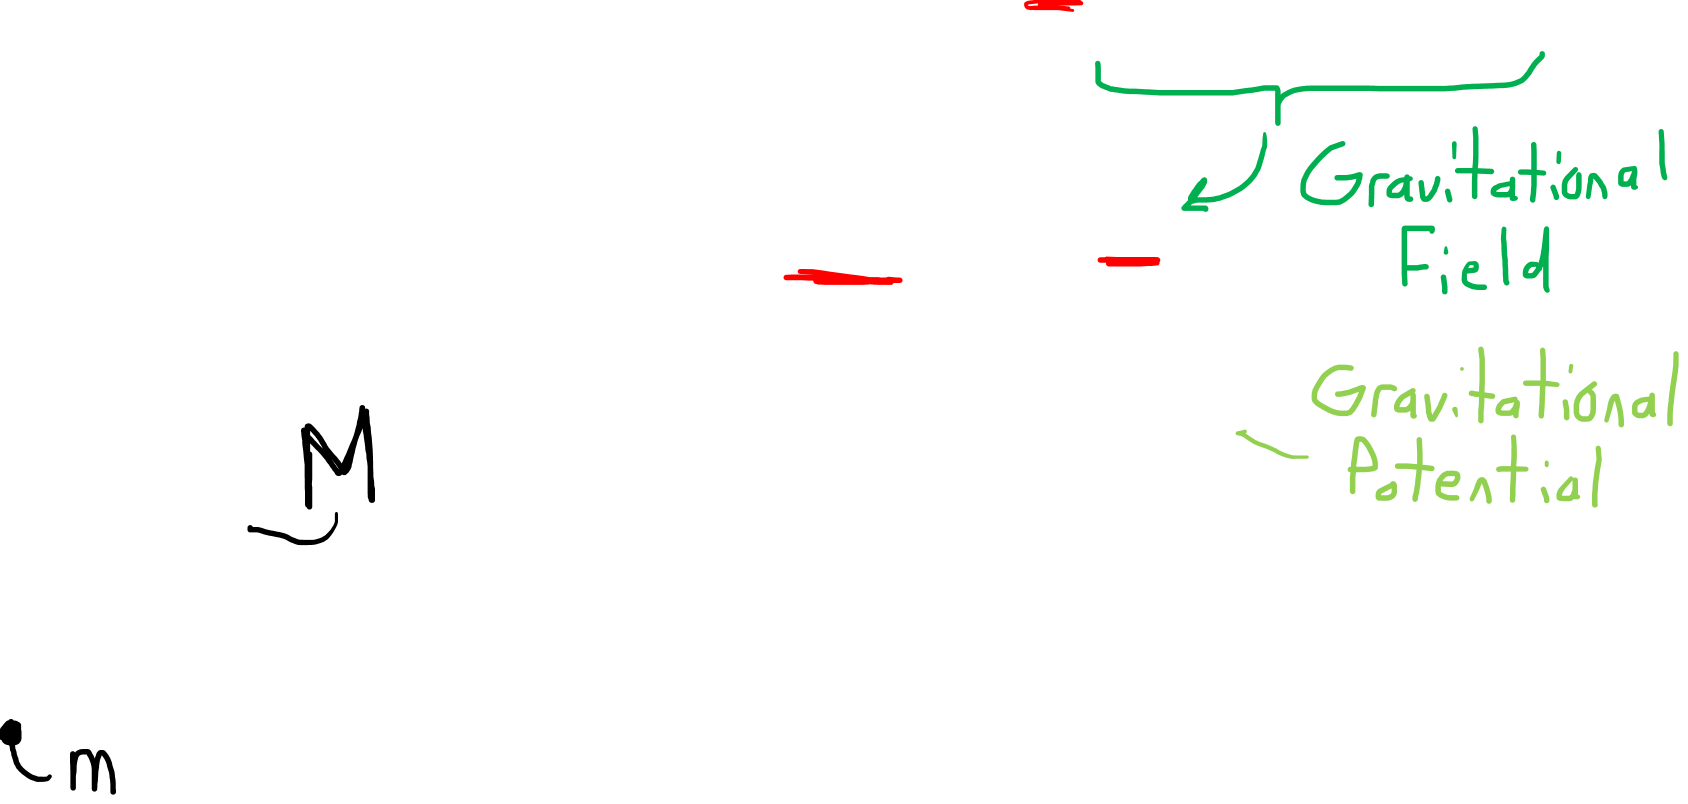 Gravitational
Field
Gravitational
Potential
M
m